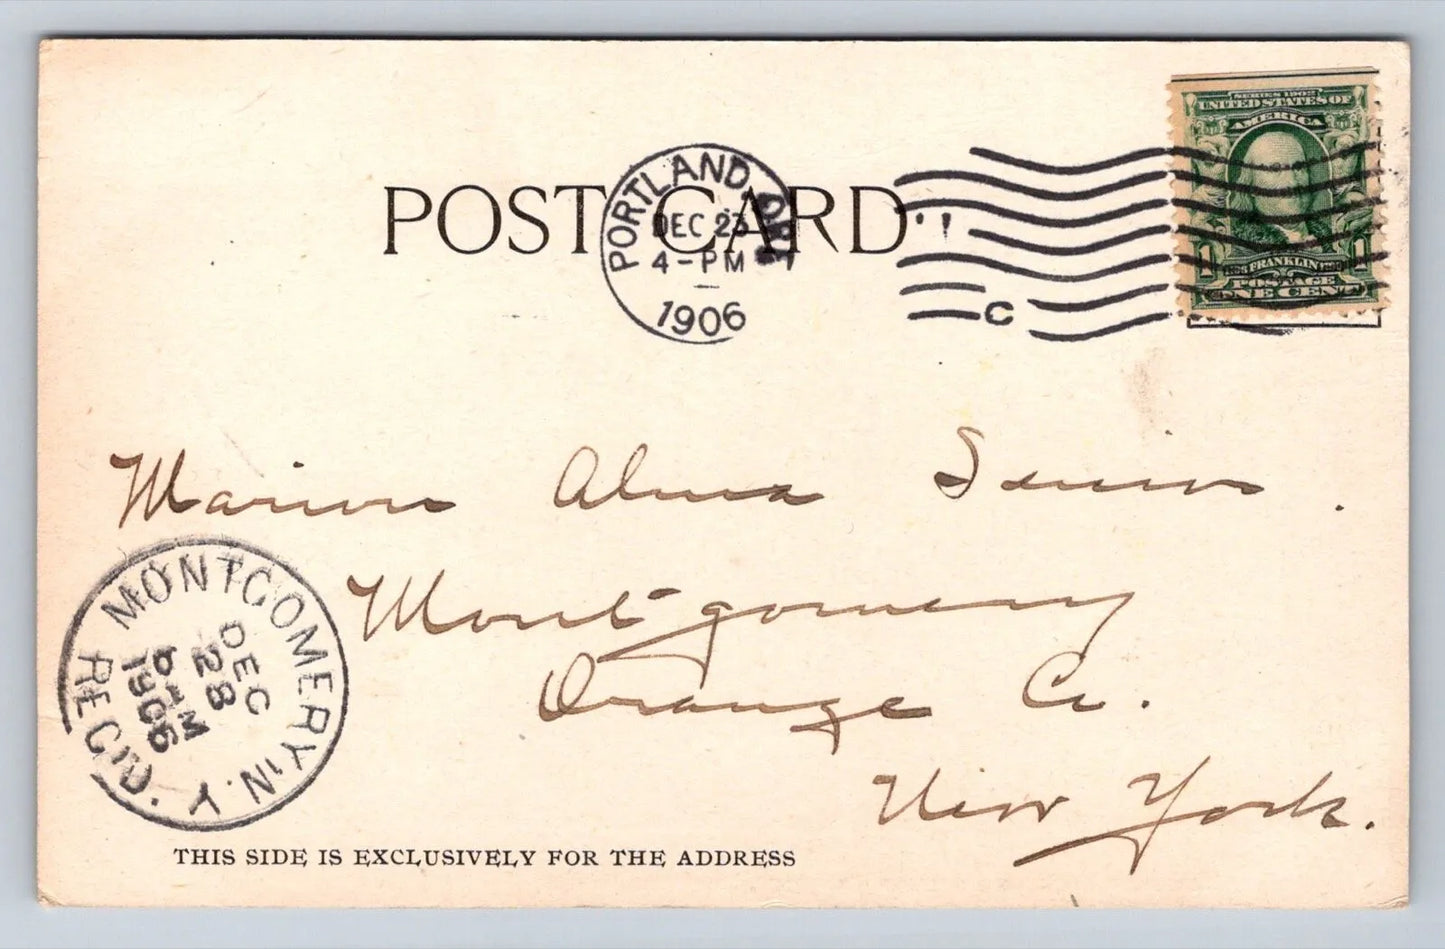 POST CARD
PORTLAND, ORE.
DEC 23
4-PM
1906
C
SERIES 1902
UNITED STATES OF
AMERICA
FRANKLIN
1 1
POSTAGE
ONE CENT
Marion Alma Senior.
Montgomery
Orange Co.
New York.
MONTGOMERY, N.Y.
DEC
28
6 AM
1906
REC'D.
THIS SIDE IS EXCLUSIVELY FOR THE ADDRESS